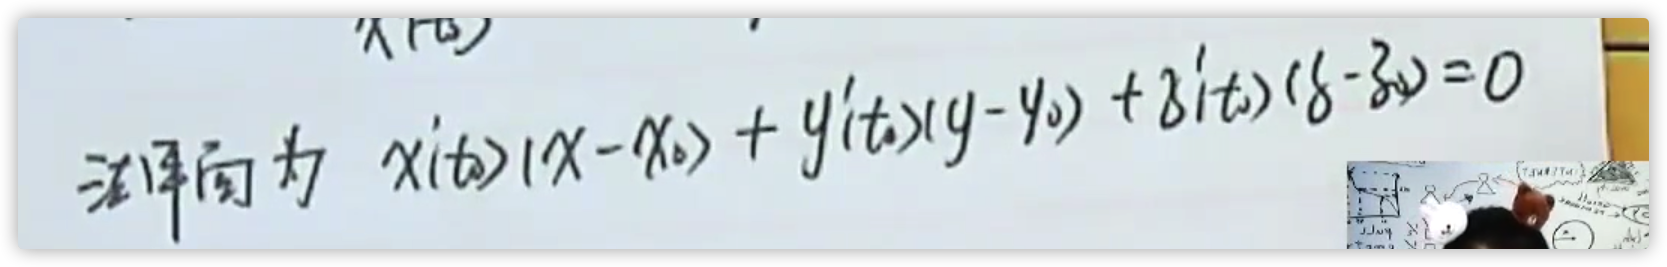 x'(t₀)
法平面为 x'(t₀)(x-x₀) + y'(t₀)(y-y₀) + z'(t₀)(z-z₀) = 0